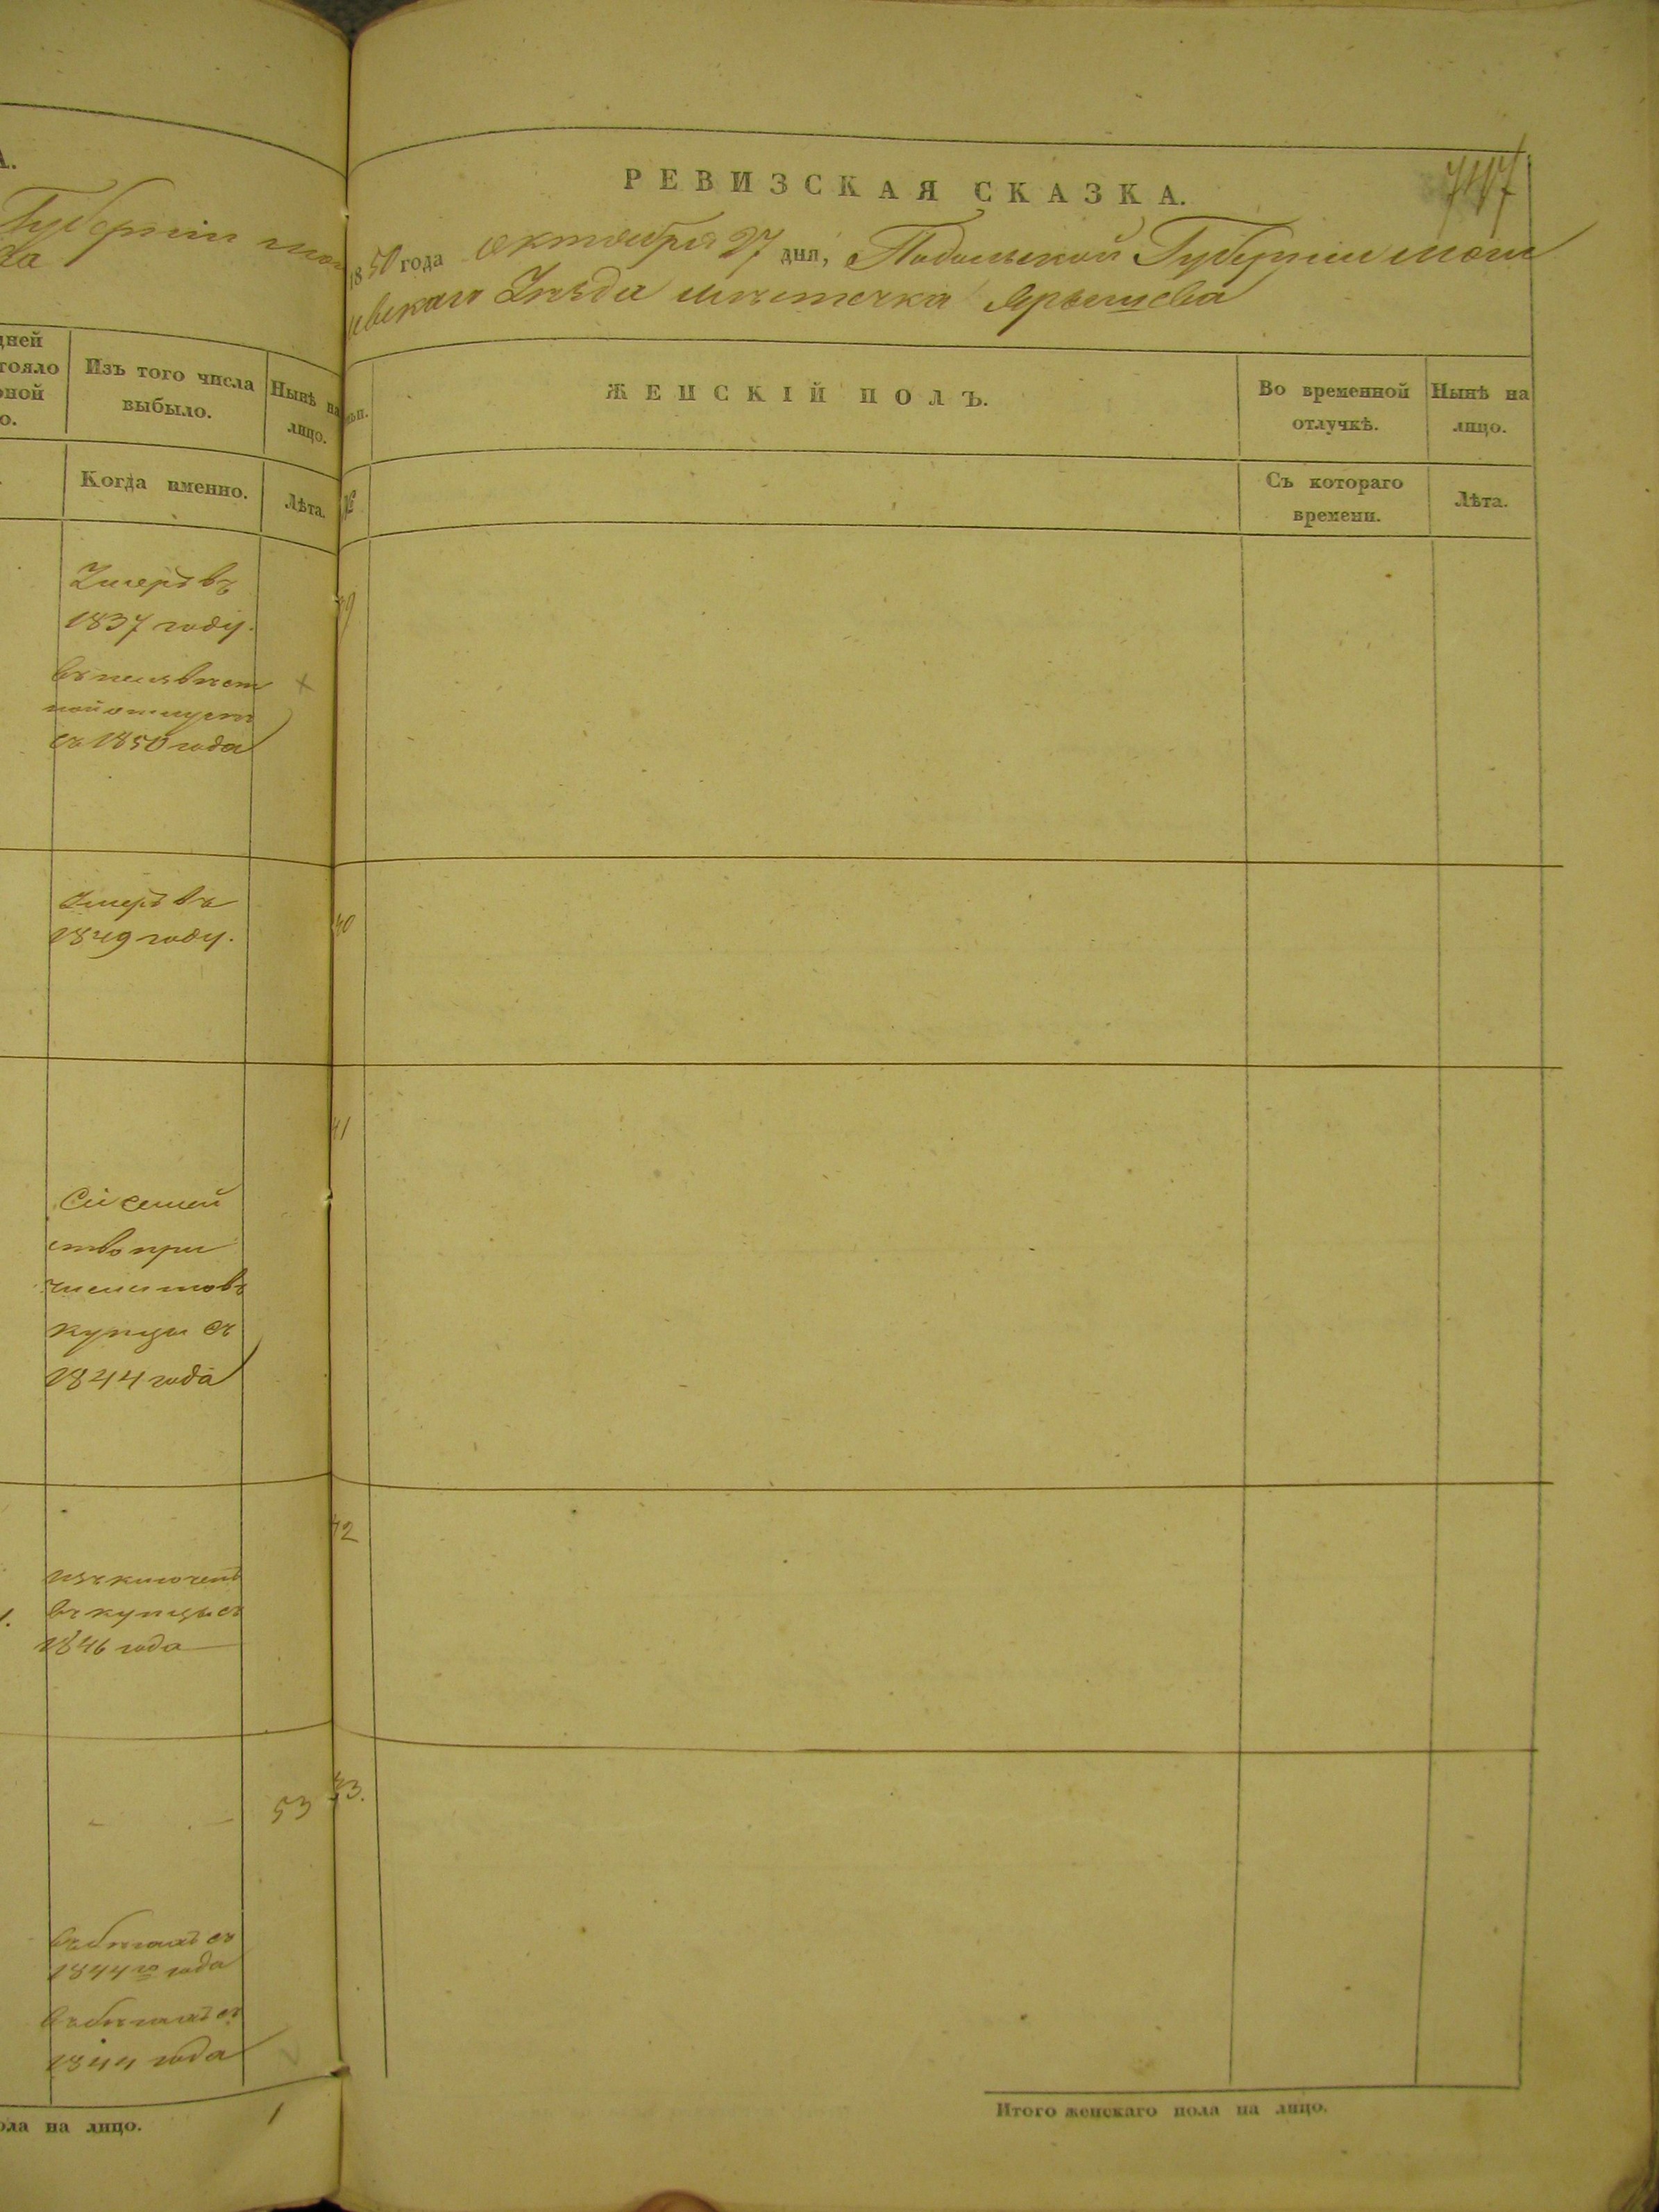 А.
Губерніи мог
да
дней
тояло
рной
о.
Изъ того числа
выбыло.
Нынѣ на
лицо.
Когда именно.
Лѣта.
Умеръ въ
1837 году.
въ неизвѣст
ной отлучке
съ 1850 года
Умеръ въ
1849 году.
Сіе семей
ство при
числитовъ
купцы съ
1844 года
изключенъ
въ купцы съ
1846 года
53
въ бѣгахъ съ
1844го года
въ бѣгахъ съ
1844 года
ола на лицо.
1
РЕВИЗСКАЯ СКАЗКА.
747
1850 года октября 27 дня, Подольской Губерніи моги
левскаго Уѣзда мѣстечка Ярышева
ЖЕНСКІЙ ПОЛЪ.
Во временной
отлучкѣ.
Нынѣ на
лицо.
№
Съ котораго
времени.
Лѣта.
39
40
41
42
43.
Итого женскаго пола на лицо.